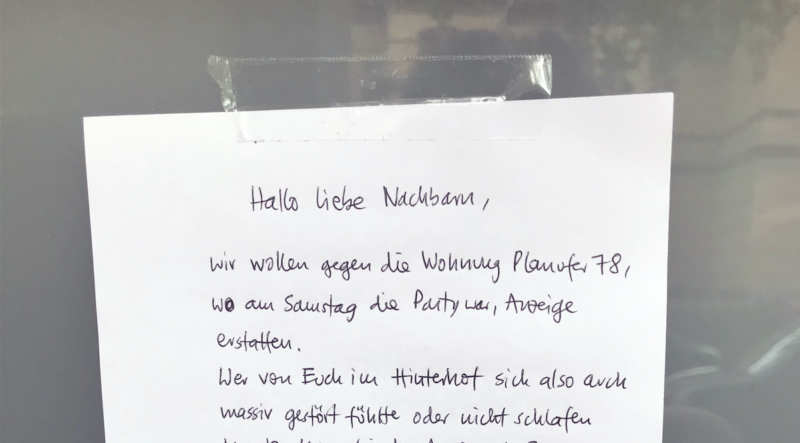 Hallo liebe Nachbarn,
wir wollen gegen die Wohnung Planufer 78,
wo am Samstag die Party war, Anzeige
erstatten.
Wer von Euch im Hinterhof sich also auch
massiv gestört fühlte oder nicht schlafen